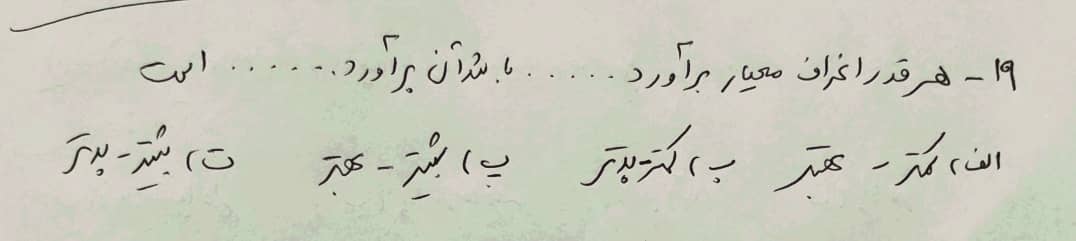 ۱۹ - هر قدر انحراف معیار برآورد ..... باشد آن برآورد ...... است
الف) کمتر - بهتر ب) کمتر - بدتر پ) بیشتر - بهتر ت) بیشتر - بدتر